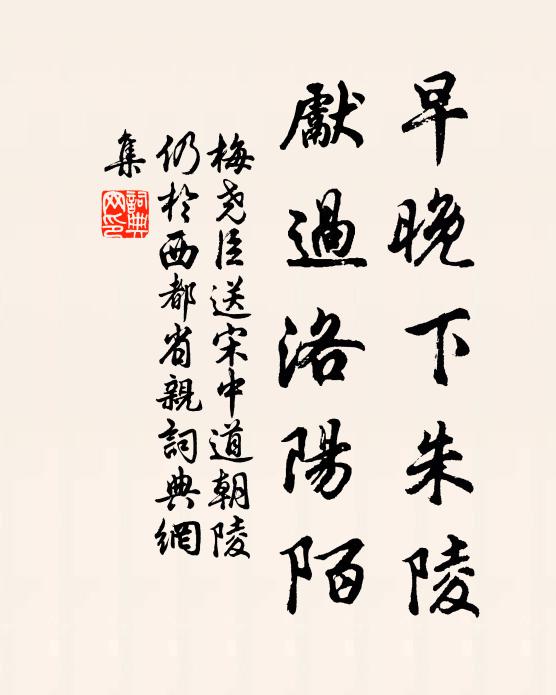 早晚下朱陵
獻過洛陽陌
梅堯臣送宋中道朝陵
仍於西都省親詞典網
集
詞典
网印